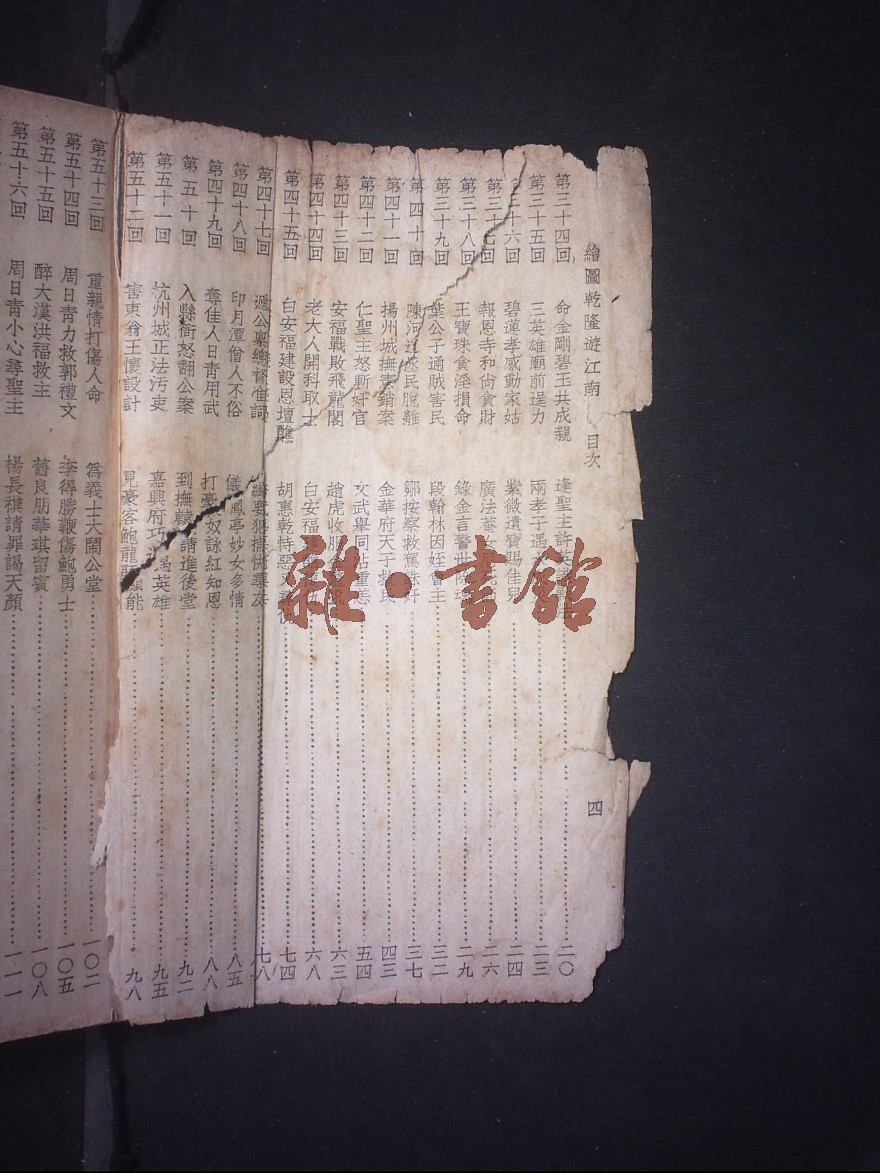 繪圖乾隆遊江南 目次 四
第三十四回 命金剛碧玉共成親 逢聖主許英 二〇
第三十五回 三英雄廟前逞力 兩孝子遇 二三
十六回 碧蓮孝感動家姑 紫微遺寶賜佳兒 二四
第三十七回 報恩寺和尚貪財 廣法菴女 二六
第三十八回 王寶珠貪淫損命 錄金言警世 二九
第三十九回 葉公子通賊害民 段翰林因姪會主 三二
第四十回 陳河道 民脫離 鄒按察救駕誅奸 三七
第四十一回 揚州城撫 銷案 金華府天子救民 四三
第四十二回 仁聖主怒斬奸官 文武舉同 重恙 五四
第四十三回 安福戰敗飛龍閣 趙虎收服 六三
第四十四回 老大人開科取士 白安福 六八
第四十五回 白安福建設恩壇醮 胡惠乾恃惡 七四
第四十七回 遞公稟總督准詞 七八
第四十八回 印月潭僧人不俗 儀鳳亭妙女多情 八五
第四十九回 奪佳人日青用武 打豪奴詠紅知恩 八八
第五十回 入縣衙怒翻公案 到撫轅 請進後堂 九二
第五十一回 杭州城正法汚吏 嘉興府巧 英雄 九五
第五十二回 害東翁王懷設計 見豪客鮑龍 能 九八
第五十三回 重親情打傷人命 爲義士大鬧公堂 一〇二
第五十四回 周日靑力救郭禮文 李得勝鞭傷鮑勇士 一〇五
第五十五回 醉大漢洪福救主 舊良朋華琪留賓 一〇八
第五十六回 周日青小心尋聖主 楊長祺請罪謁天顏 一一一
雜·書館